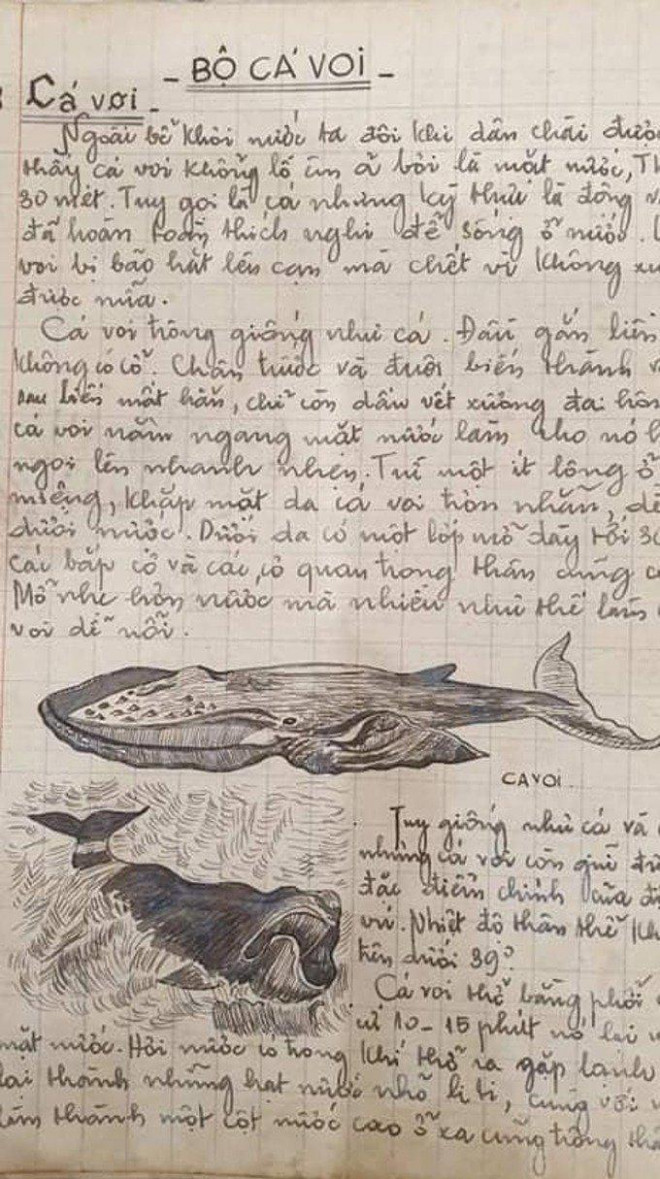 - BỘ CÁ VOI -
Cá voi -
Ngoài bể khơi nước ta đôi khi dân chài được
thấy cá voi khổng lồ êm ả bơi là mặt nước,
30 mét. Tuy gọi là cá nhưng kỳ thực là động
đã hoàn toàn thích nghi để sống ở nước.
voi bị bão hất lên cạn mà chết vì không
được nữa.
Cá voi trông giống như cá. Đầu gắn liền
không có cổ. Chân trước và đuôi biến thành
sau biến mất hẳn, chỉ còn dấu vết xương đai
cá voi nằm ngang mặt nước làm cho nó
ngoi lên nhanh nhẹn. Trừ một ít lông ở
miệng, khắp mặt da cá voi trơn nhẵn, dễ
dưới nước. Dưới da có một lớp mỡ dày tới
các bắp cơ và các cơ quan trong thân cũng
Mỡ nhẹ hơn nước mà nhiều như thế làm
voi dễ nổi.
CA VOI.
Tuy giống như cá và
nhưng cá voi còn giữ
đặc điểm chính của
vú. Nhiệt độ thân thể
trên dưới 39°
Cá voi thở bằng phổi
cứ 10-15 phút nó lại
mặt nước. Hơi nước có trong khí thở ra gặp lạnh
lại thành những hạt nước nhỏ li ti, cùng với
làm thành một cột nước cao ở xa cũng trông